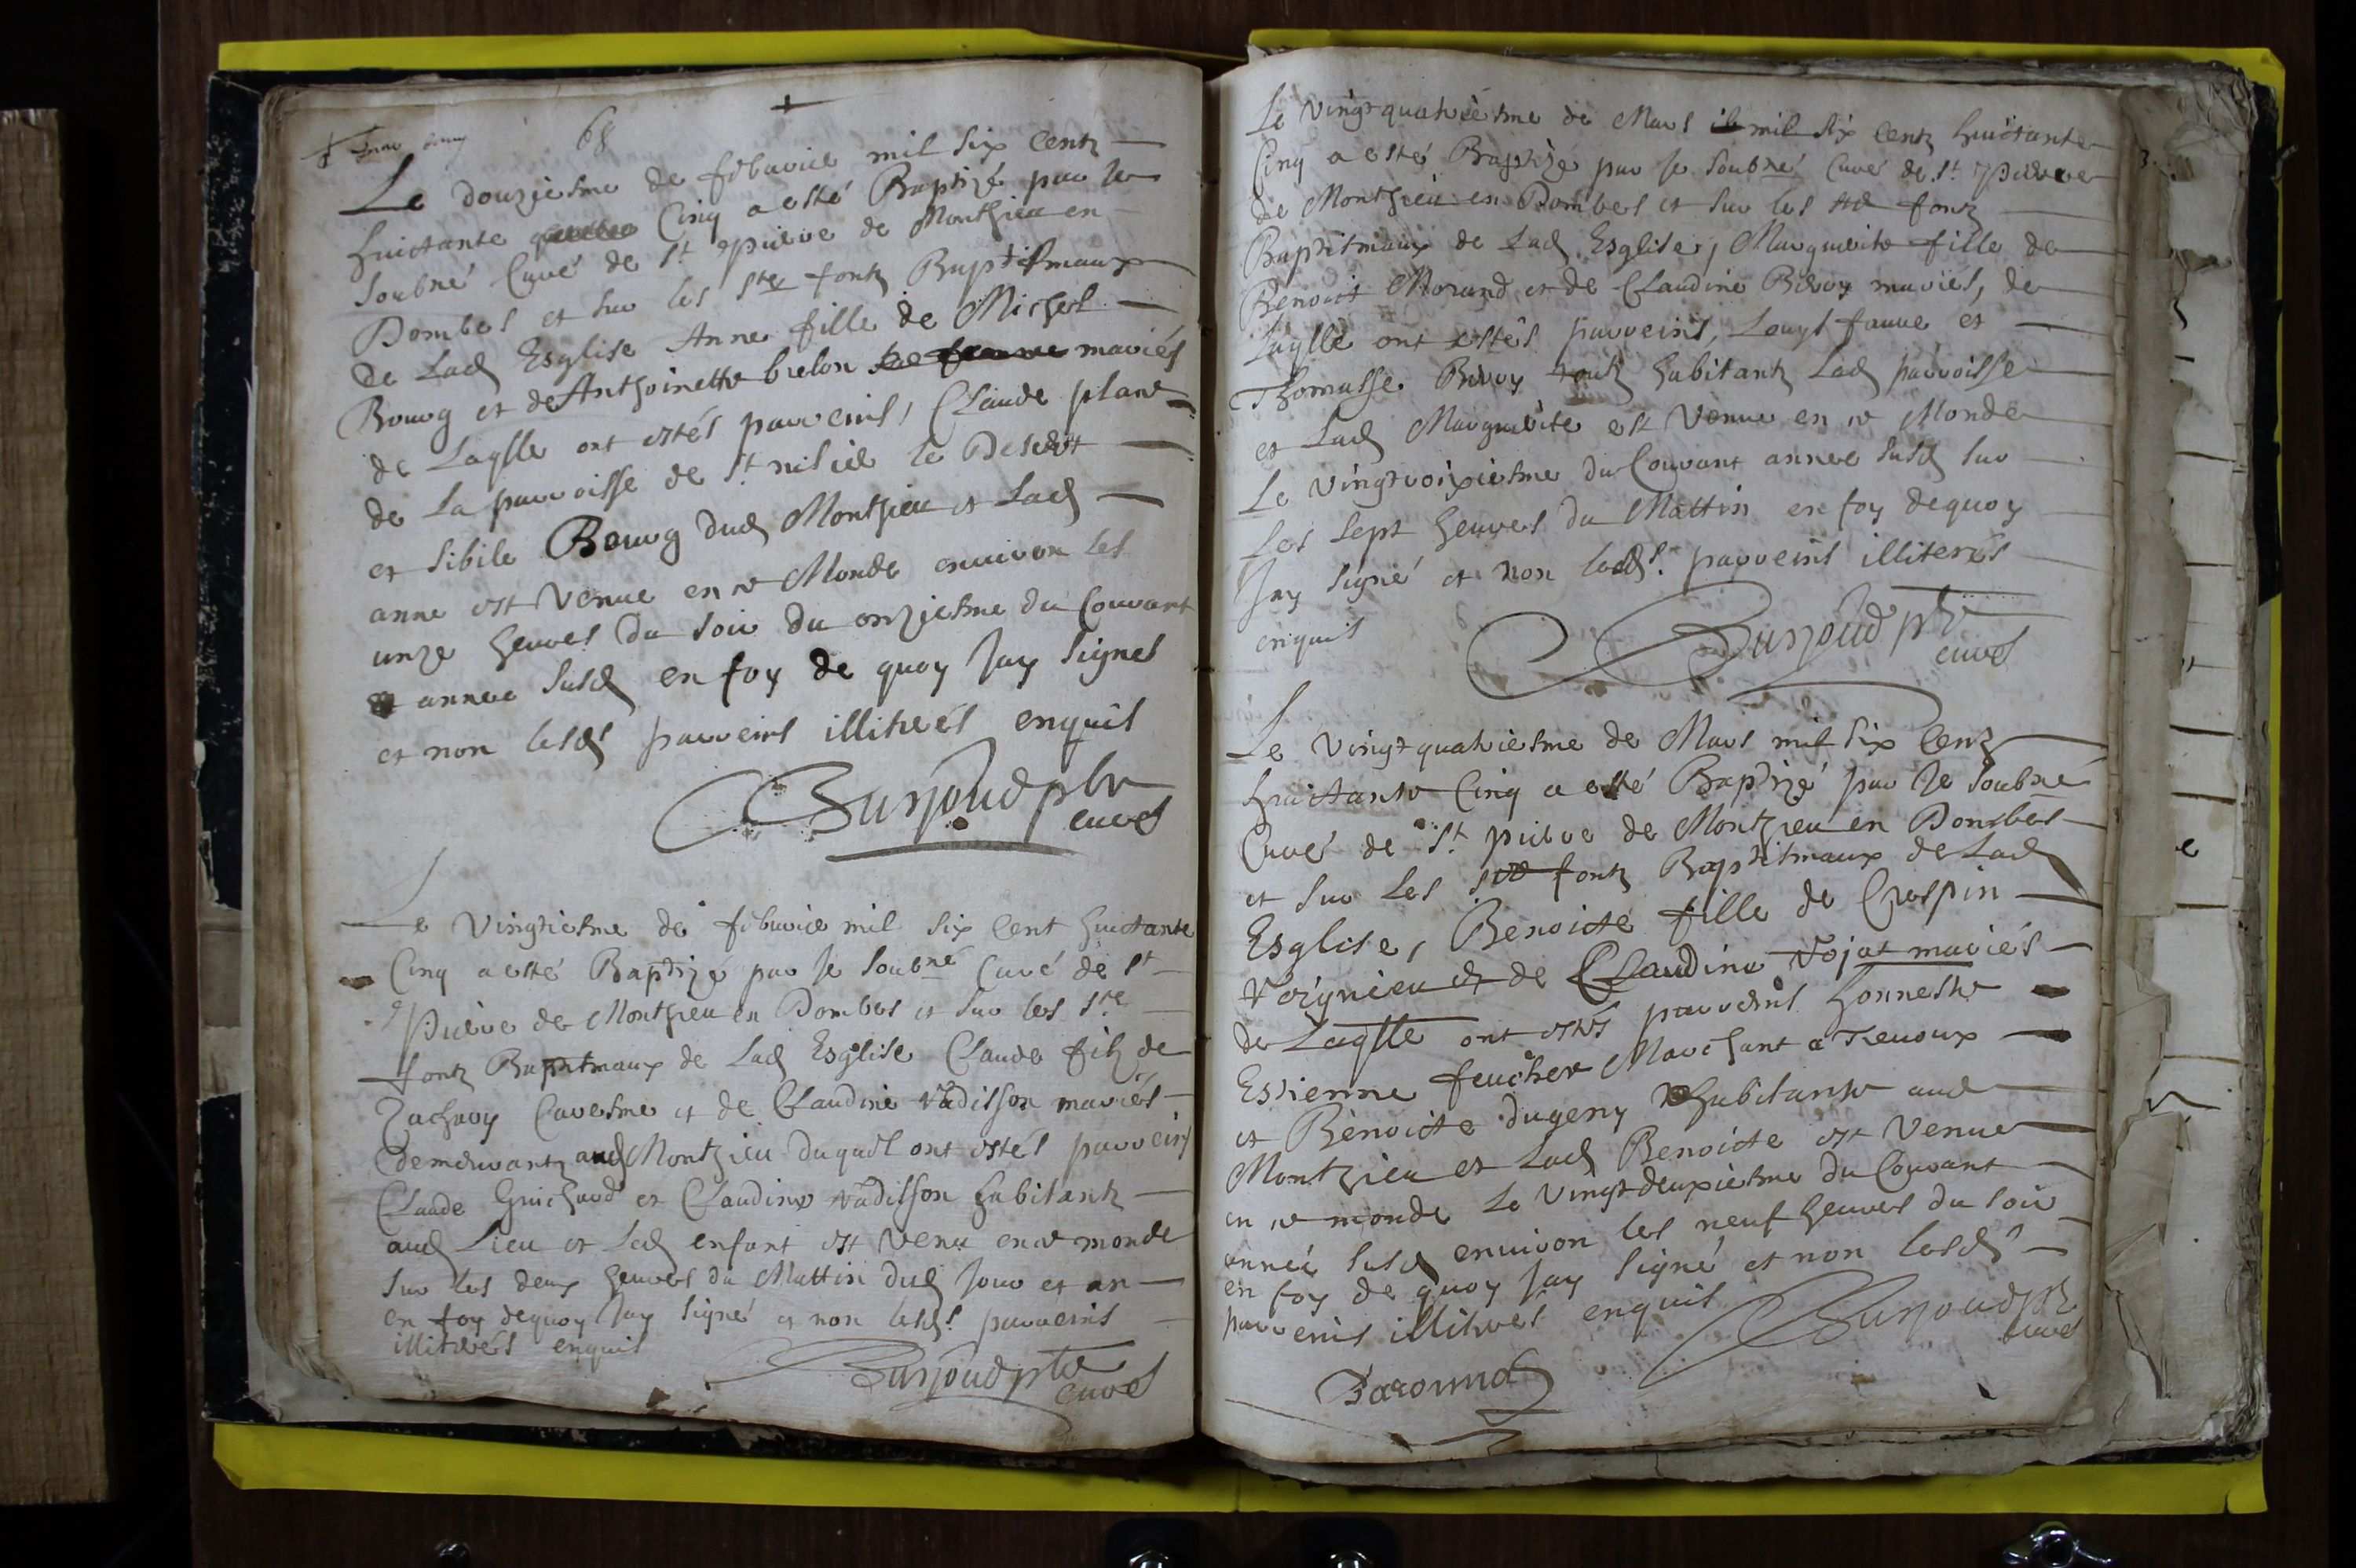 68
Le douziesme de febvrier mil six centz
huictante Cinq a esté Baptizé par Je
soubné Curé de St pierre de Monthieu en
Dombes et sur les stes fontz Baptismaux
de Lad Esglise Anne fille de Michel
Bourg et de Anthoinette brelon mariés
de Laqlle ont estés parreins, Claude plane
de La parroisse de St nisier le Desert
et sibile Bourg dud Monthieu et Lad
anne est venue en ce Monde environ les
unze heures du soir du onziesme du Courant
et annee susd en foy de quoy Jay signes
et non lesds parreins illitrés enquis
Surjoud pbr
curé
Le vingtiesme de febvrier mil six cent huictante
Cinq a esté Baptizé par Je soubné Curé de St
Pierre de Monthieu en Dombes et sur les stes
fontz Baptitmaux de Lad Esglise Claude filz de
Zachary Caresme et de Claudine vadisson mariés
demeurantz aud Monthieu duquel ont estés parreins
Claude Guichard et Claudine vadisson habitantz
aud Lieu et Led enfant est venu en ce monde
sur les deux heures du Mattin dud Jour et an
en foy dequoy Jay signé et non lesds parreins
illitrés enquis
Surjoud pbr
curé
Le vingt quatriesme de Mars mil six centz huictante
Cinq a esté Baptizé par Je soubné Curé de St Pierre
de Monthieu en Dombes et sur les ste fontz
Baptitmaux de Lad Esglise, Marguerite fille de
Benoict Morand et de Claudine Biroy mariés, de
Laqlle ont estés parreins, Louys faure et
Thomasse Biroy toutz habitantz Lad parroisse
et Lad Marguerite est venue en ce Monde
Le vingtroisiesme du Courant annee susd sur
Les sept heures du Mattin en foy dequoy
Jay signé et non lesds. parreins illiterés
enquis
Surjoud pbr
curé
Le vingt quatriesme de Mars mil six centz
huictante Cinq a esté Baptizé par Je soubné
Curé de St pierre de Montzieu en Dombes
et sur Les ste fontz Baptitmaux de Lad
Esglise, Benoicte fille de Crespin
Voignieu et de Claudine Vojat mariés
de Laqlle ont estés parreins honneste
Estienne feucher Marchant a Trevoux
et Benoicte dugeny habitante aud
Montzieu et Lad Benoicte est venue
en ce monde Le vingt deuxiesme du Courant
année susd environ les neuf heures du soir
en foy de quoy Jay signé et non lesds
parreins illitres enquis
Surjoud pbr
curé
Baronnat